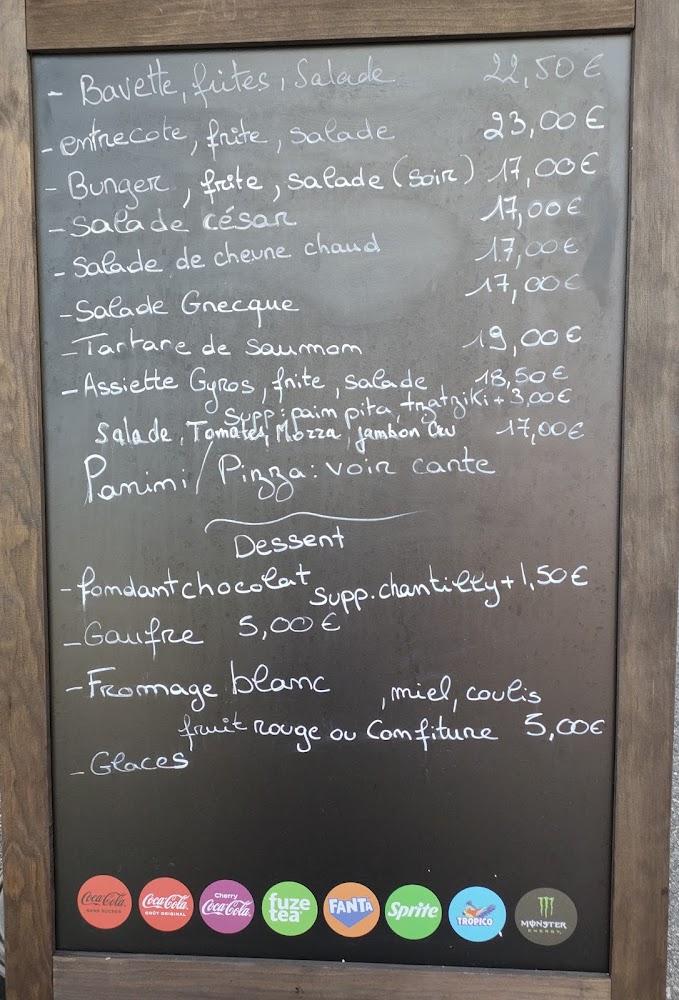 - Bavette, frites, Salade 22,50€
- entrecote, frite, salade 23,00€
- Burger, frite, salade (soir) 17,00€
- Salade césar 17,00€
- Salade de chevre chaud 17,00€
- Salade Grecque 17,00€
- Tartare de saumon 19,00€
- Assiette Gyros, frite, salade 18,50€
Supp: pain pita, tzatziki + 3,00€
Salade, Tomates, Mozza, jambon Cru 17,00€
Panini / Pizza: voir carte
Dessert
- fondant chocolat supp. chantilly + 1,50€
- Gaufre 5,00€
- Fromage blanc , miel, coulis
fruit rouge ou Confiture 5,00€
- Glaces
Coca-Cola SANS SUCRES
Coca-Cola GOÛT ORIGINAL
Cherry Coca-Cola
fuze tea
FANTA
Sprite
TROPICO
MONSTER ENERGY